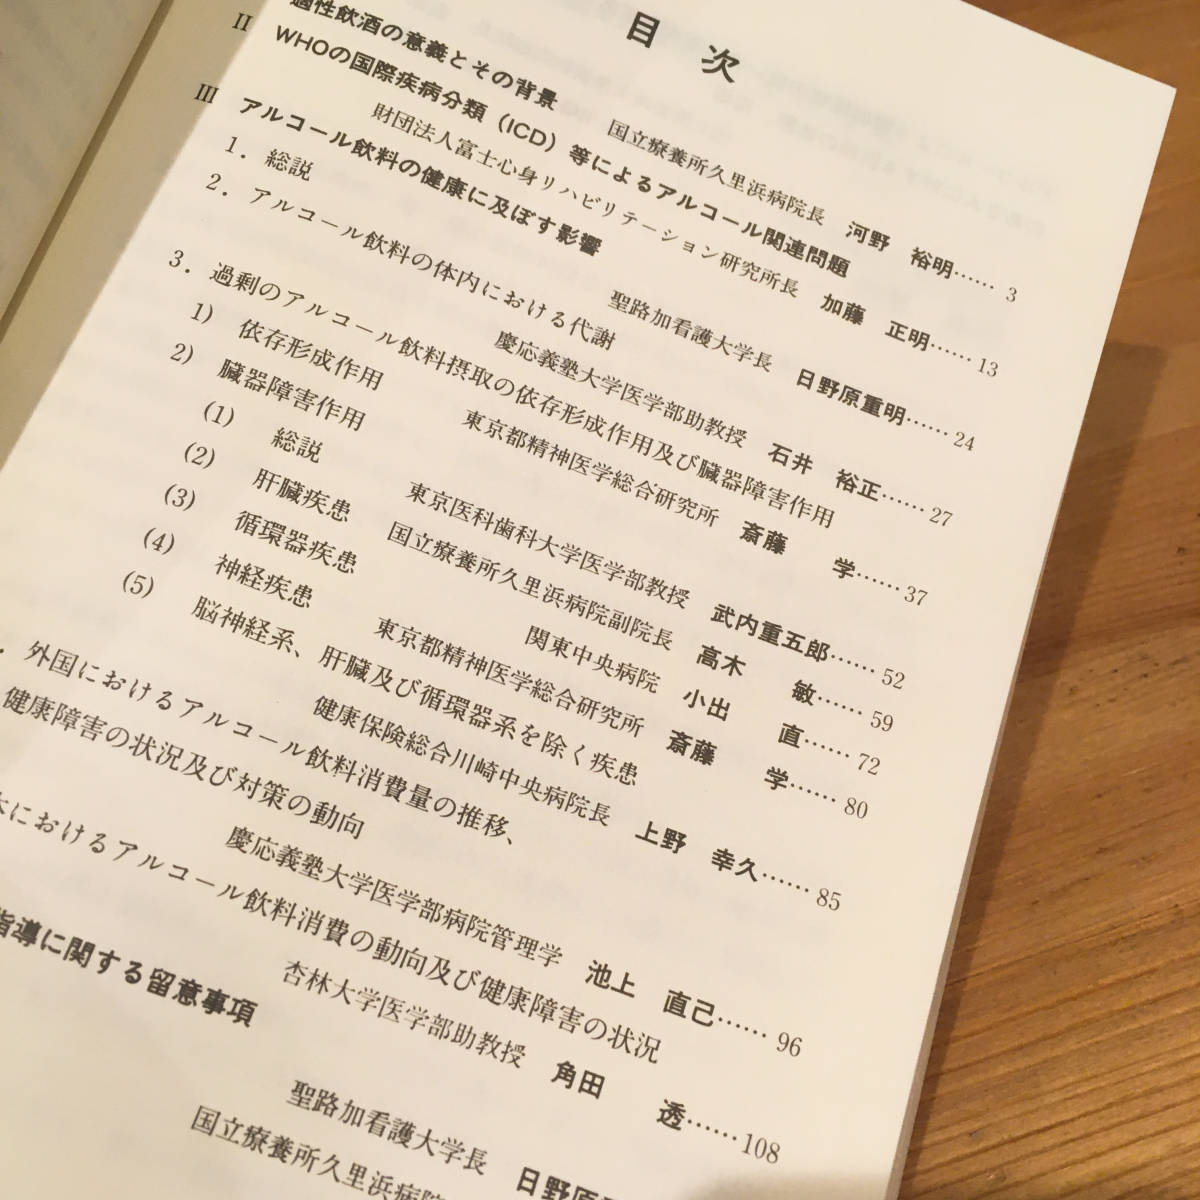 目 次
適性飲酒の意義とその背景
国立療養所久里浜病院長 河野 裕明…… 3
II WHOの国際疾病分類（ICD）等によるアルコール関連問題
財団法人富士心身リハビリテーション研究所長 加藤 正明…… 13
III アルコール飲料の健康に及ぼす影響
1. 総説
聖路加看護大学長 日野原重明…… 24
2. アルコール飲料の体内における代謝
慶応義塾大学医学部助教授 石井 裕正…… 27
3. 過剰のアルコール飲料摂取の依存形成作用及び臓器障害作用
1) 依存形成作用
東京都精神医学総合研究所 斎藤 学…… 37
2) 臓器障害作用
(1) 総説
東京医科歯科大学医学部教授 武内重五郎…… 52
(2) 肝臓疾患
国立療養所久里浜病院副院長 高木 敏…… 59
(3) 循環器疾患
関東中央病院 小出 直…… 72
(4) 神経疾患
東京都精神医学総合研究所 斎藤 学…… 80
(5) 脳神経系、肝臓及び循環器系を除く疾患
健康保険総合川崎中央病院長 上野 幸久…… 85
外国におけるアルコール飲料消費量の推移、
健康障害の状況及び対策の動向
慶応義塾大学医学部病院管理学 池上 直己…… 96
におけるアルコール飲料消費の動向及び健康障害の状況
杏林大学医学部助教授 角田 透…… 108
指導に関する留意事項
聖路加看護大学長 日野原
国立療養所久里浜病院